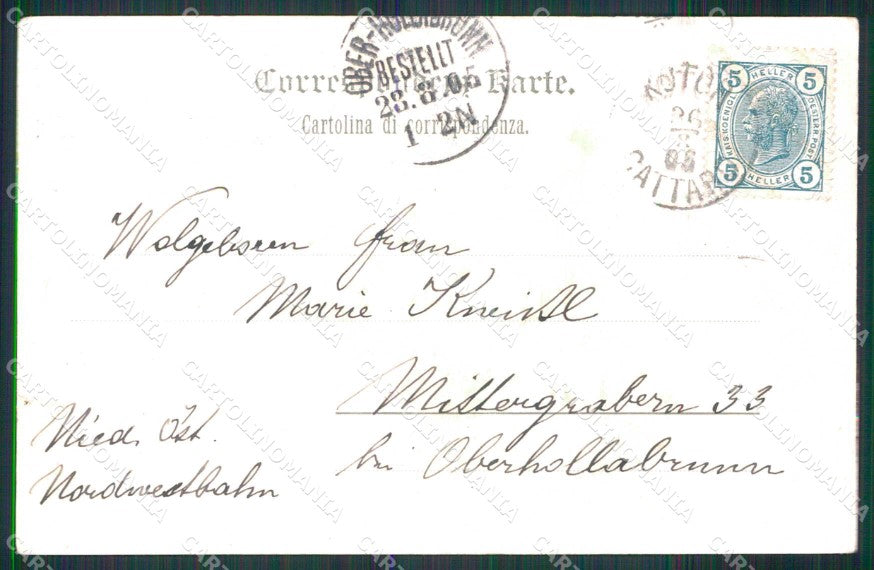 OBER-HOLLABRUNN
BESTELLT
23.8.05
1 2N
Correspondenz-Karte.
Cartolina di corrispondenza.
KOTOR
26
8
05
CATTARO
5 HELLER 5
KAIS. KOENIGL. OESTERR. POST
5 HELLER 5
Wolgeboren Frau
Marie Kneißl
Mittergrabern 33
bei Oberhollabrunn
Nied. Öst.
Nordwestbahn
CARTOLINOMANIA